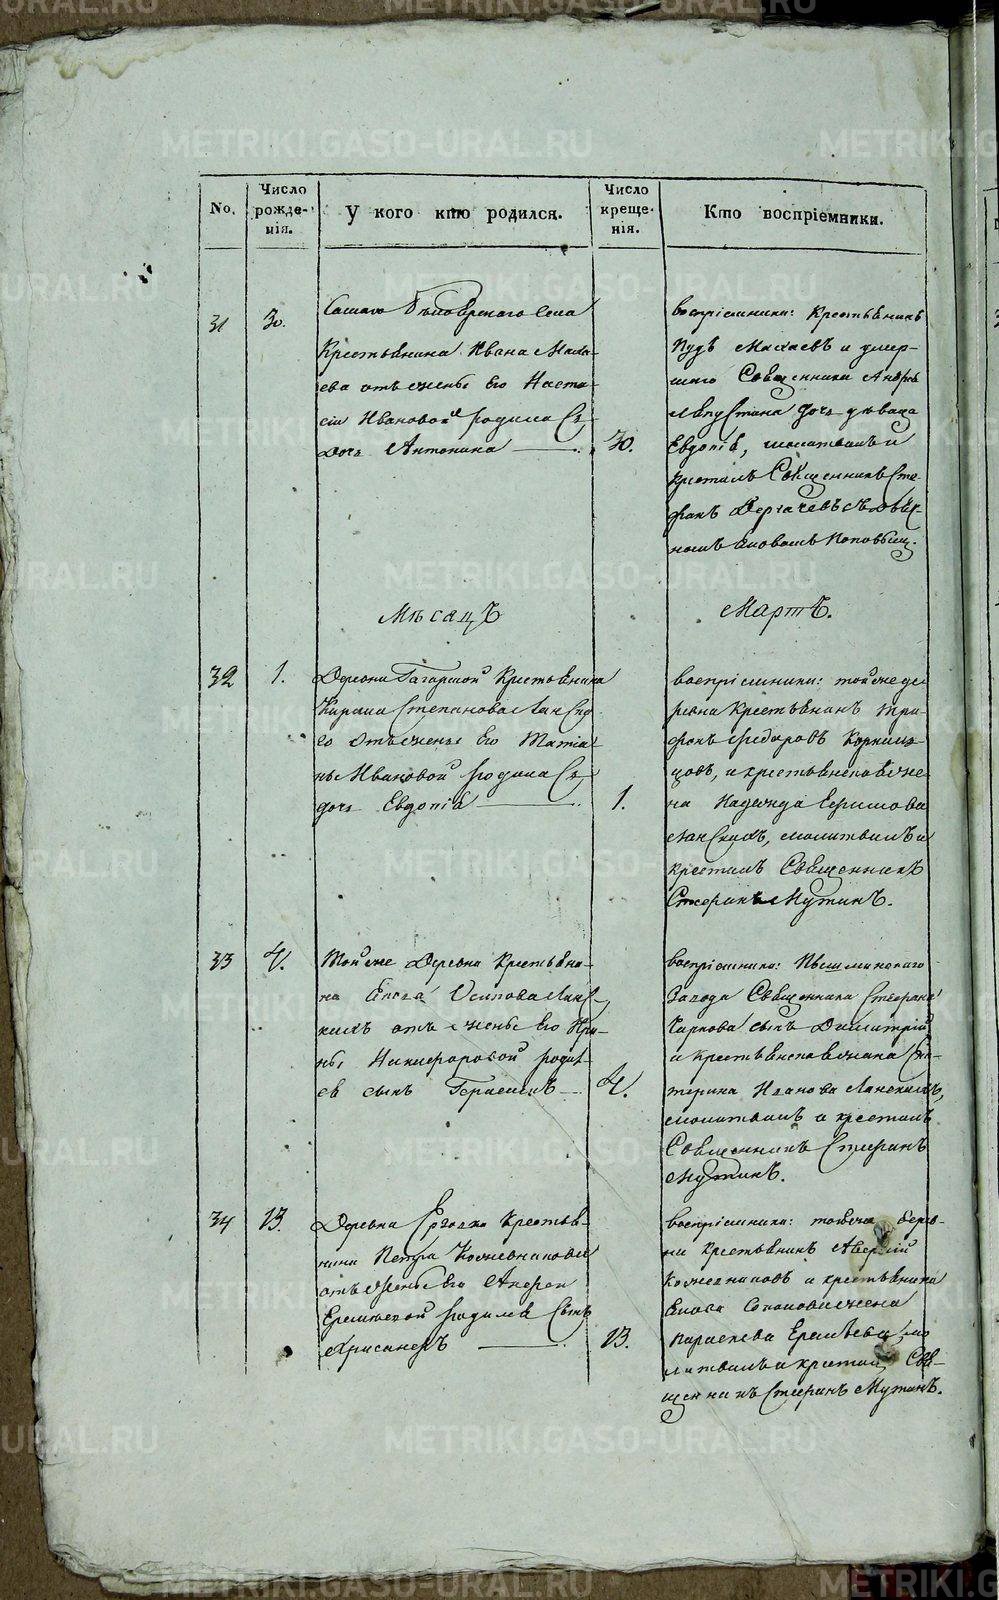 No.
Число рожде-нія.
У кого кто родился.
Число креще-нія.
Кто воспріемники.
31
30.
Самаго Бѣлоярскаго Села
Крестьянина Ивана Мала-
ева отъ жены его Наста-
сіи Ивановой родилась
дочь Антонина
30.
воспріемники: крестьянинъ
Пудъ Малаевъ и умер-
шаго Священника Андрея
дочь дѣвица
Евдокія, молитвилъ и
крестилъ Священникъ Сте-
фанъ Дерхачевъ съ
Поповымъ.
Мѣсяцъ
Мартъ.
32
1.
Деревни Гагарской Крестьянина
Кирила Степанова Лански-
го отъ жены его Татіа-
ны Ивановой родилась
дочь Евдокія
1.
воспріемники: той же де-
ревни крестьянинъ Три-
фонъ Федоровъ Корнил-
цовъ, и крестьянская же-
на Надежда Ефимова
Ланскихъ, молитвилъ и
крестилъ Священникъ
Стефанъ Мутинъ.
33
4.
Той же Деревни Крестьяни-
на Осипова Ланс-
кихъ отъ жены его Ири-
ны Никифоровой родил-
ся сынъ Герасимъ
4.
воспріемники: Пышминскаго
Завода Священника Стефана
сынъ Димитрій
и крестьянская жена Ека-
терина Иванова Ланскихъ,
молитвилъ и крестилъ
Священникъ Стефанъ
Мутинъ.
34
13.
Деревни Крестья-
нина Петра Кожевникова
отъ жены его
Еремѣевой родился сынъ
Хрисанфъ
13.
воспріемники: тойже дерев-
ни крестьянинъ Аверкій
Кожевниковъ и крестьянина
жена
Параскева Еремѣева, мо-
литвилъ и крестилъ Свя-
щенникъ Стефанъ Мутинъ.
METRIKI.GASO-URAL.RU